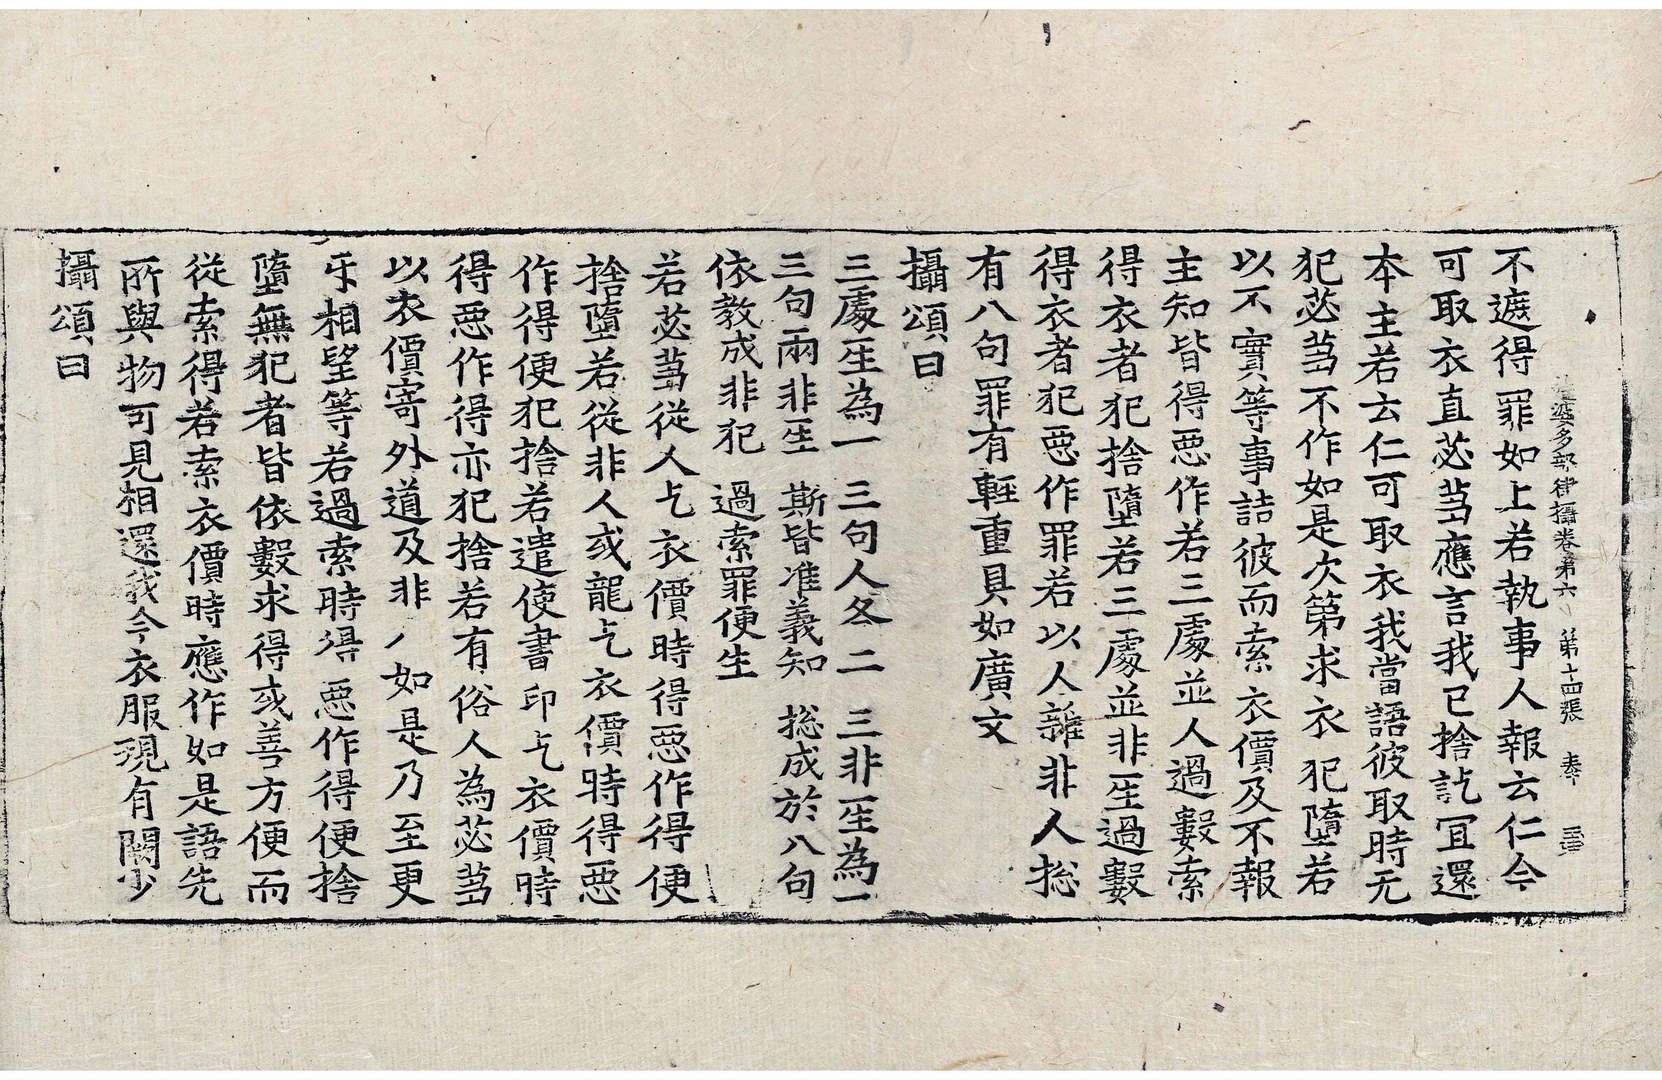 婆多部律攝卷第六 第十四張 奉
不遮得罪如上若執事人報云仁今
可取衣直苾芻應言我已捨訖冝還
本主若云仁可取衣我當語彼取時无
犯苾芻不作如是次第求衣犯墮若
以不實等事詰彼而索衣價及不報
主知皆得惡作若三處並人過數索
得衣者犯捨墮若三處並非生過數
得衣者犯惡作罪若以人雜非人捴
有八句罪有輕重具如廣文
攝頌曰
三處生為一 三句人各二 三非生為一
三句兩非生 斯皆准義知 捴成於八句
依教成非犯 過索罪便生
若苾芻從人乞衣價時得惡作得便
捨墮若從非人或龍乞衣價時得惡
作得便犯捨若遣使書印乞衣價時
得惡作得亦犯捨若有俗人為苾芻
以衣價寄外道及非人如是乃至更
㸦相望等若過索時得惡作得便捨
墮無犯者皆依數求得或善方便而
從索得若索衣價時應作如是語先
所與物可見相還我今衣服現有闕少
攝頌曰